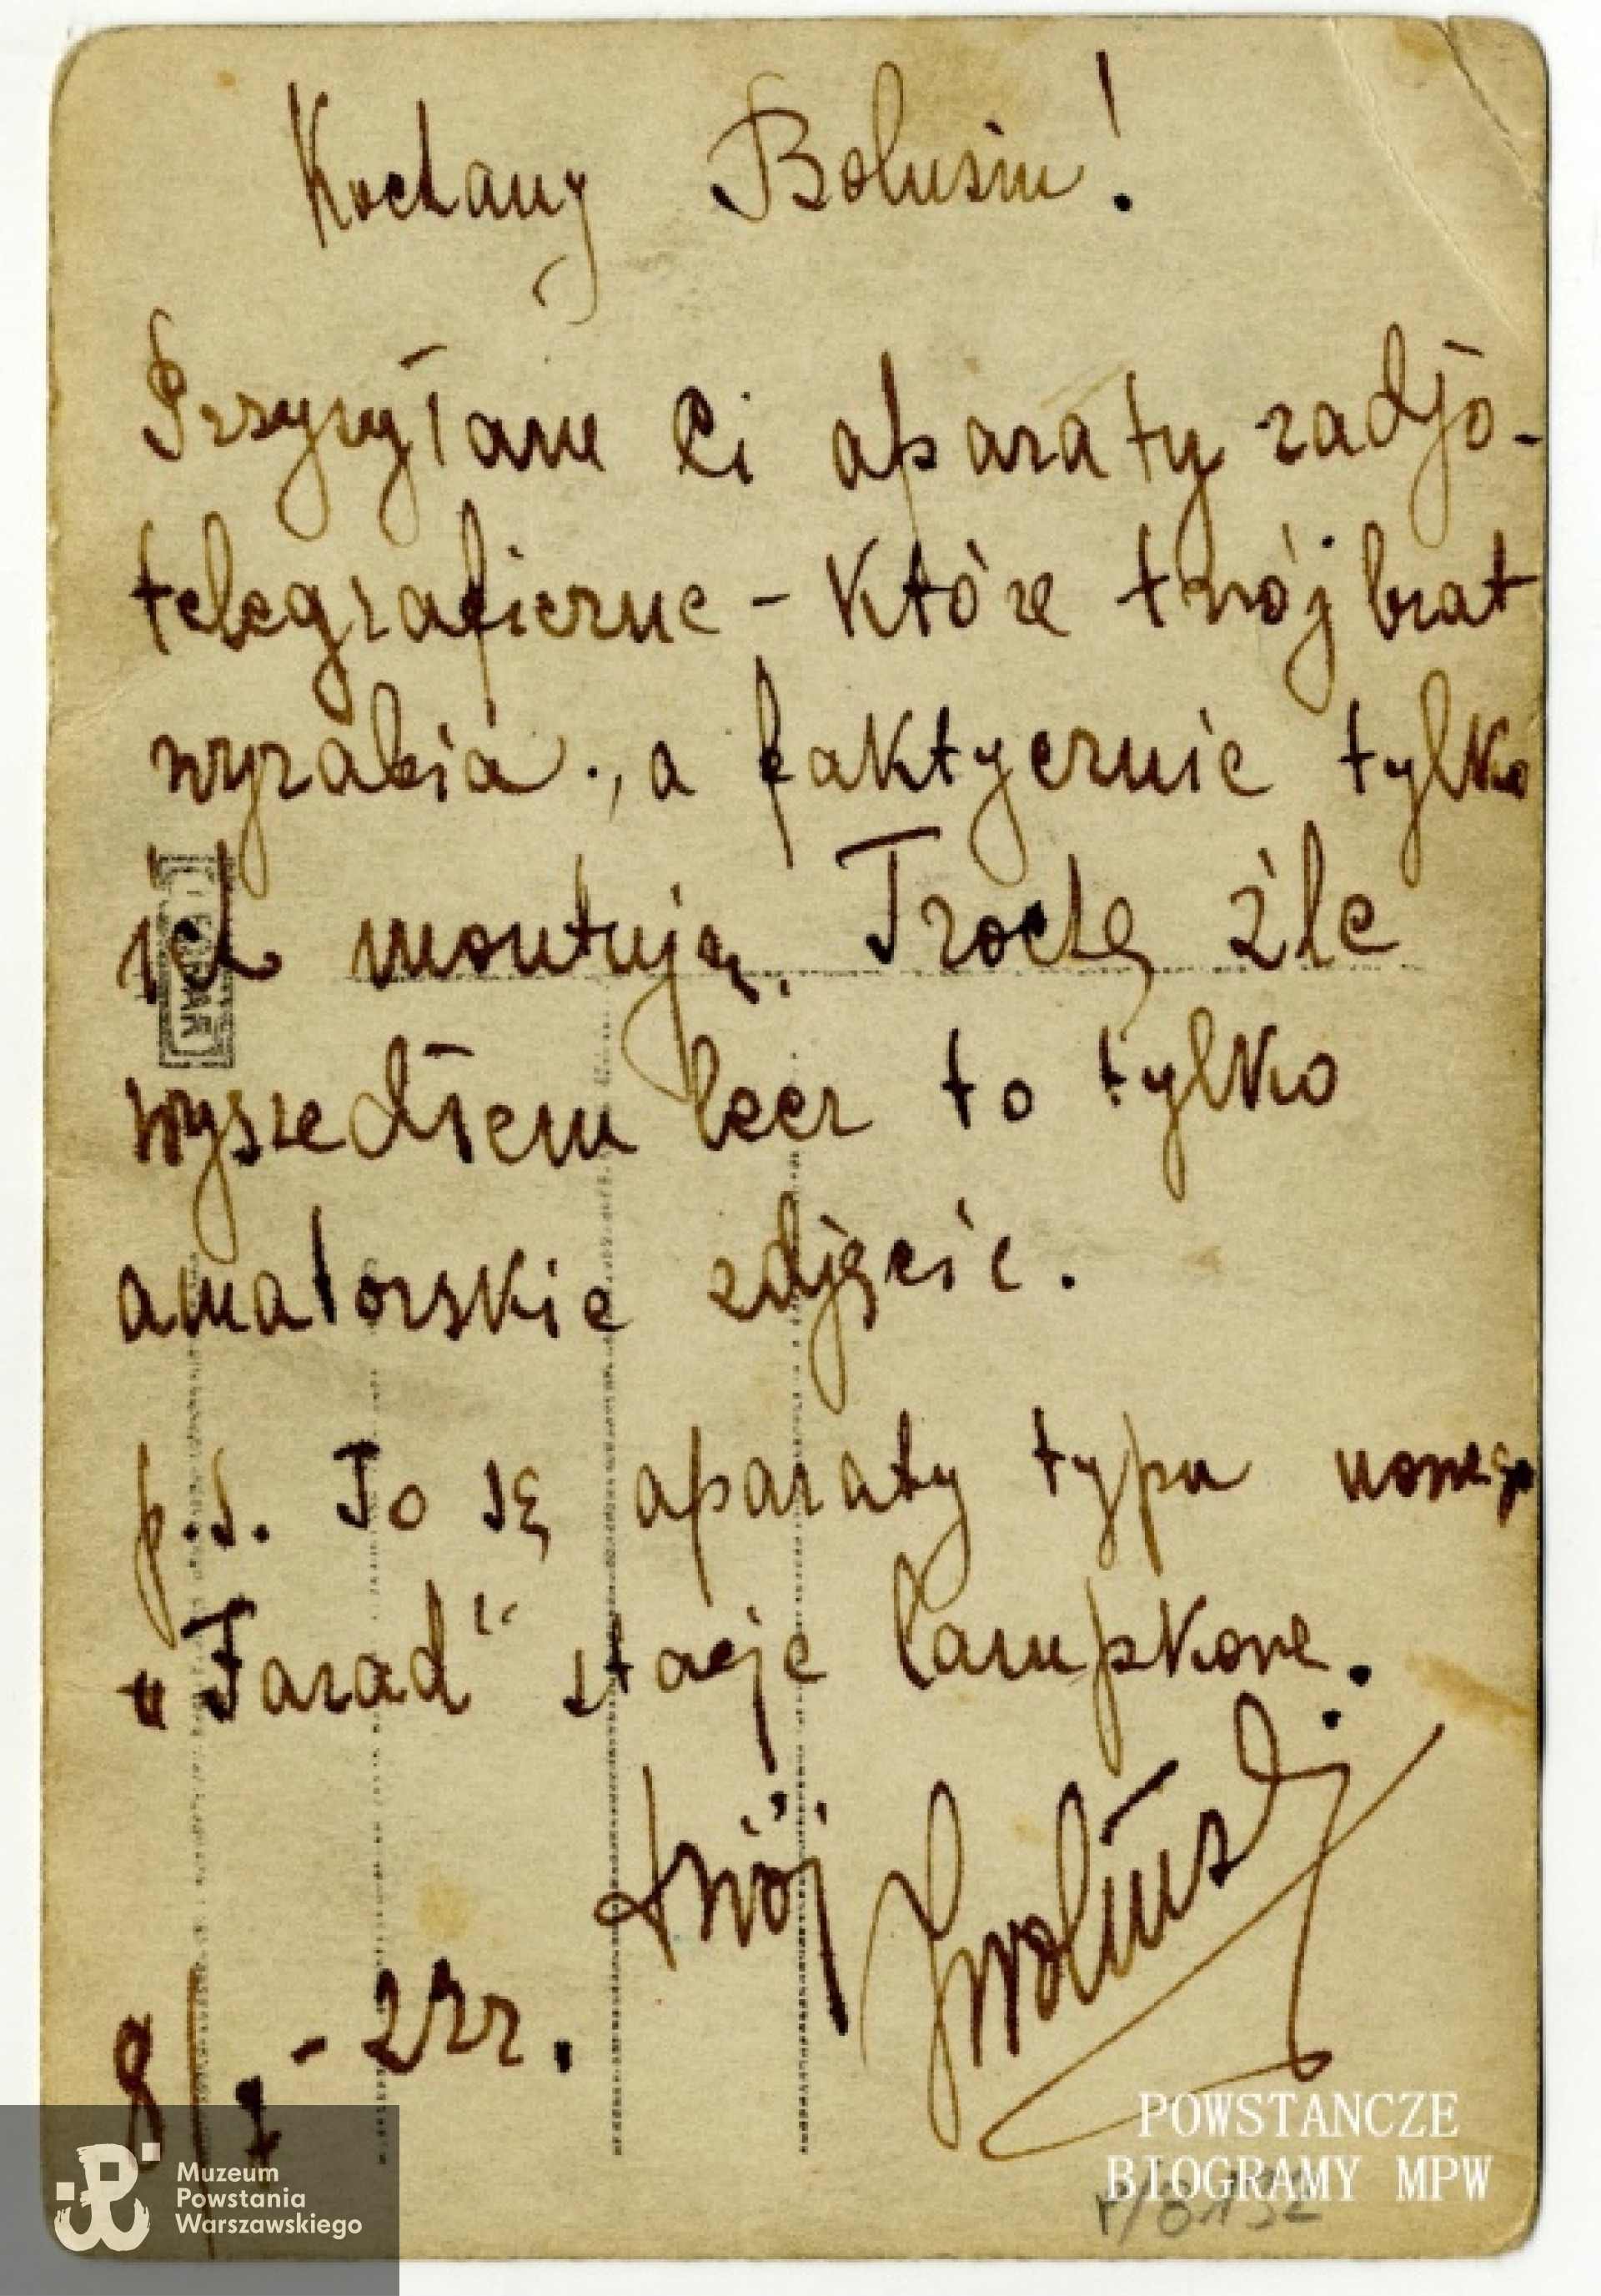 Kochany Bolusiu!
Przysyłam Ci aparaty radjo-
telegraficzne - które twój brat
wyrabia., a faktycznie tylko
je montują. Trochę źle
wyszedłem lecz to tylko
amatorskie zdjęcie.
p.s. To są aparaty typu nowego
„Farad" stacje lampkowe.
twój
8/I - 22r.
POWSTAŃCZE
BIOGRAMY MPW
P/8192
Muzeum
Powstania
Warszawskiego